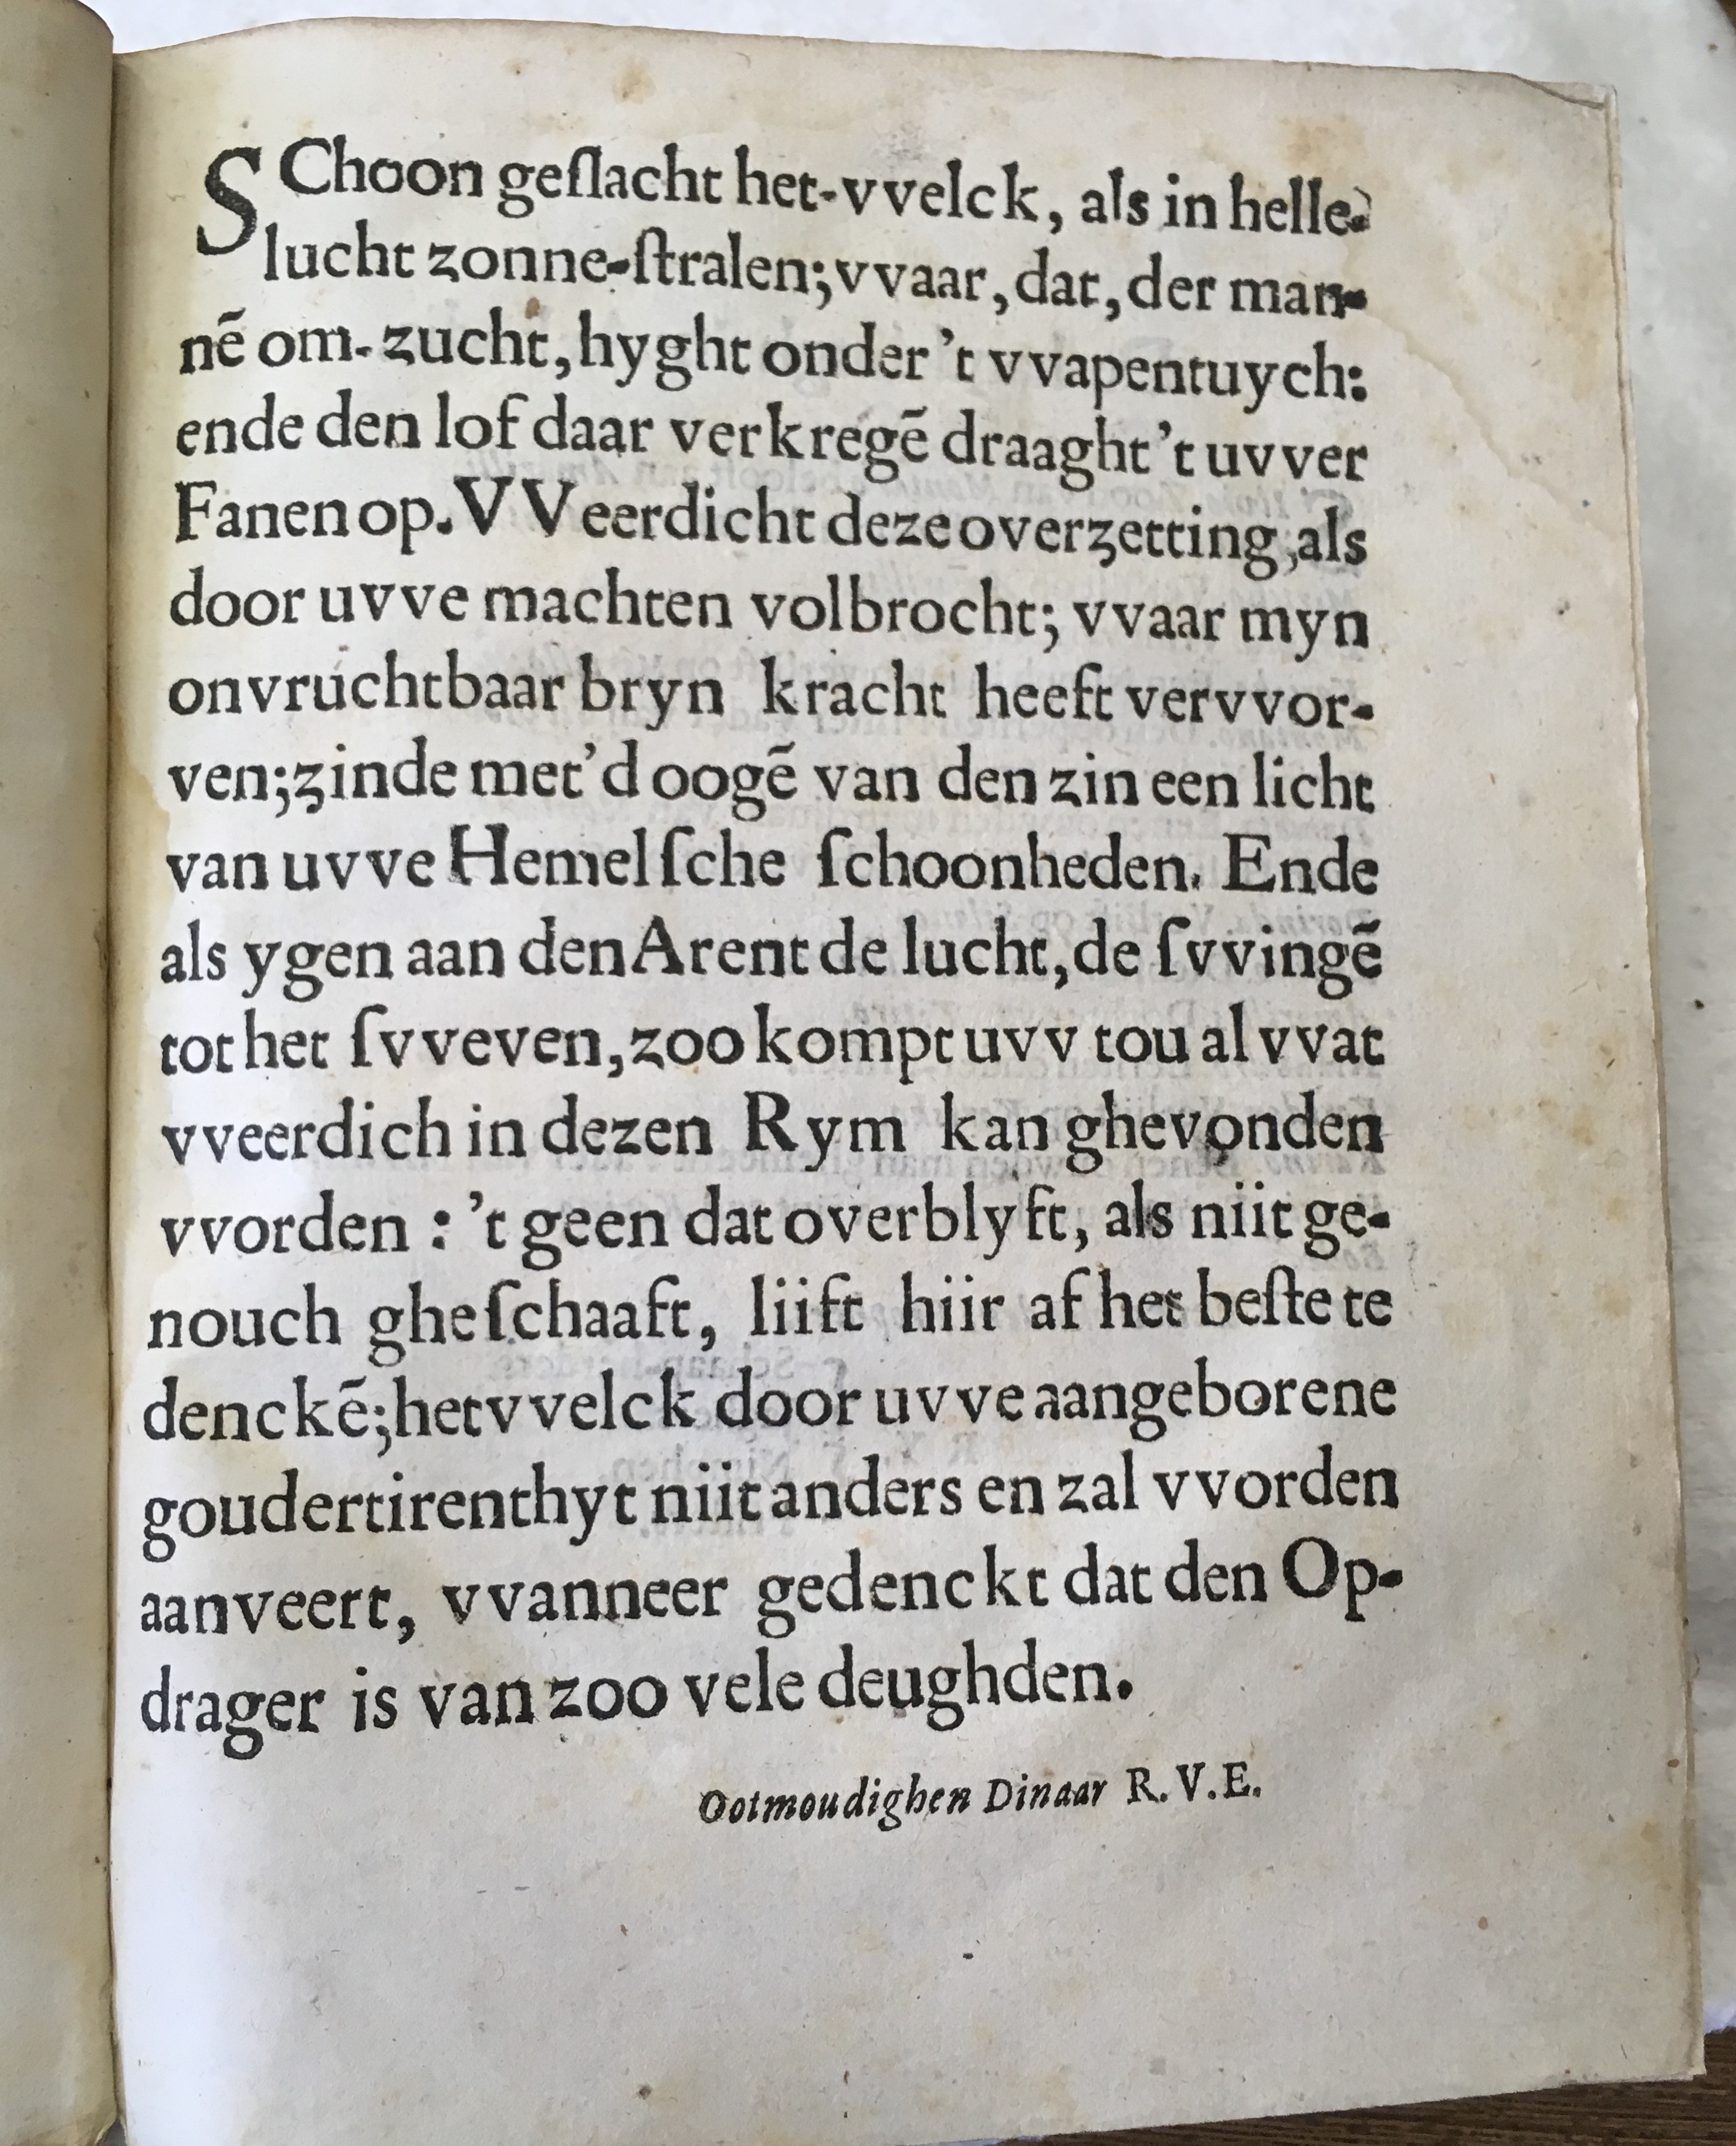 SChoon geſlacht het-vvelck, als in helle
lucht zonne-ſtralen; vvaar, dat, der man-
nē om-zucht, hyght onder 't vvapentuych:
ende den lof daar verkregē draaght 't uvver
Fanen op. VVeerdicht deze overzetting, als
door uvve machten volbrocht; vvaar myn
onvruchtbaar bryn kracht heeft vervvor-
ven; zinde met 'd oogē van den zin een licht
van uvve Hemelſche ſchoonheden. Ende
als ygen aan den Arent de lucht, de ſvvingē
tot het ſvveven, zoo kompt uvv tou al vvat
vveerdich in dezen Rym kan ghevonden
vvorden : 't geen dat overblyft, als niit ge-
nouch gheſchaaft, liift hiir af het beſte te
denckē; hetvvelck door uvve aangeborene
goudertirenthyt niit anders en zal vvorden
aanveert, vvanneer gedenckt dat den Op-
drager is van zoo vele deughden.
Ootmoudighen Dinaar R. V. E.